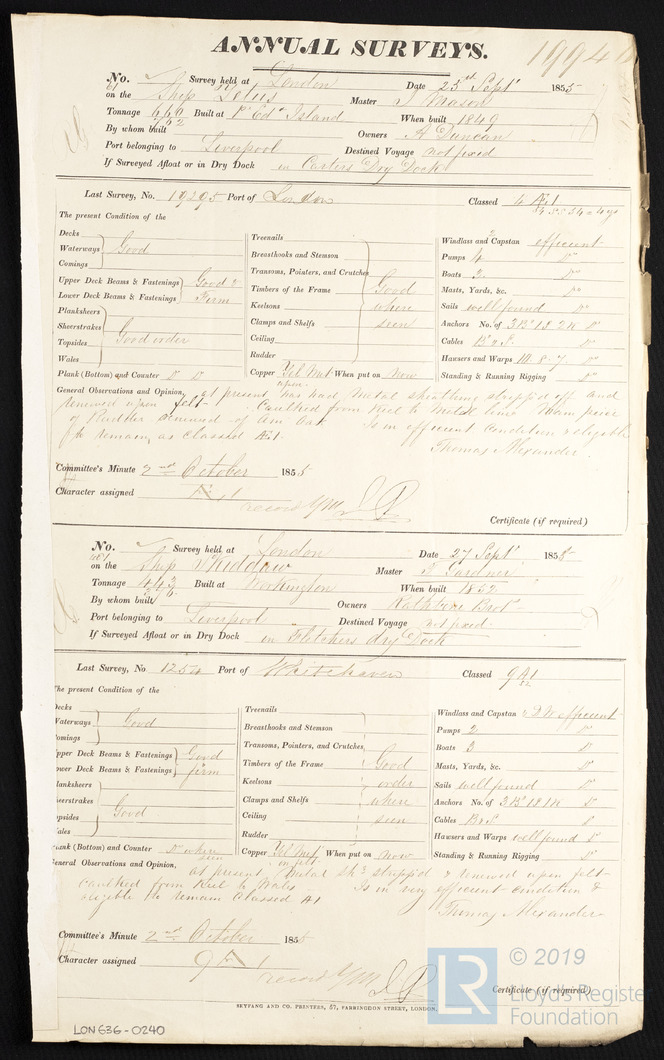 ANNUAL SURVEYS.
No. Survey held at London Date 25th Sept 1855
on the Ship Master J Mason
Tonnage Built at P. Edd Island When built 1849
By whom built Owners A Duncan
Port belonging to Liverpool Destined Voyage not fixed
If Surveyed Afloat or in Dry Dock in Carters Dry Dock
Last Survey, No. 19295 Port of London Classed
The present Condition of the
Decks
Waterways Good
Comings
Upper Deck Beams & Fastenings Good &
Lower Deck Beams & Fastenings Firm
Planksheers
Sheerstrakes Good order
Topsides
Wales
Plank (Bottom) and Counter Do Do
Treenails
Breasthooks and Stemson
Transoms, Pointers, and Crutches
Timbers of the Frame Good
Keelsons where
Clamps and Shelfs seen
Ceiling
Rudder
Copper Yel Met When put on Now
Windlass and Capstan efficient
Pumps 4 Do
Boats 3 Do
Masts, Yards, &c. Do
Sails well found
Anchors No. of 3 Bs 1S 2K Do
Cables Do
Hawsers and Warps Do
Standing & Running Rigging Do
General Observations and Opinion, at present has had metal sheathing stripped off and
renewed upon felt Caulked from Keel to Metal line Main piece
of Rudder renewed of Am Oak Is in efficient condition & eligible
to remain as classed Æ1.
Thomas Alexander
Committee's Minute 2nd October 1855
Character assigned Æ 1
record YM
Certificate (if required)
No. Survey held at London Date 27 Sept 1855
on the Ship Whiddaw Master J Gardner
Tonnage Built at Workington When built 1852
By whom built Owners Rathbone Bros
Port belonging to Liverpool Destined Voyage not fixed
If Surveyed Afloat or in Dry Dock in Fletchers dry Dock
Last Survey, No 1254 Port of Whitehaven Classed 9 A1
The present Condition of the
Decks
Waterways Good
Comings
Upper Deck Beams & Fastenings Good
Lower Deck Beams & Fastenings firm
Planksheers
Sheerstrakes Good
Topsides
Wales
Plank (Bottom) and Counter Do where seen
Treenails
Breasthooks and Stemson
Transoms, Pointers, and Crutches
Timbers of the Frame Good
Keelsons order
Clamps and Shelfs where
Ceiling seen
Rudder
Copper Yel Met on felt When put on Now
Windlass and Capstan efficient
Pumps 2 Do
Boats 3 Do
Masts, Yards, &c. Do
Sails well found Do
Anchors No. of 3 Bs 1S 1K Do
Cables Do
Hawsers and Warps well found Do
Standing & Running Rigging Do
General Observations and Opinion, at present Metal shg stripped & renewed upon felt
caulked from Keel to Wales Is in very efficient condition &
eligible to remain Classed A1
Thomas Alexander
Committee's Minute 2nd October 1855
Character assigned 9 A 1
record YM
Certificate (if required)
SEYFANG AND CO. PRINTERS, 57, FARRINGDON STREET, LONDON.
LON636-0240
LR
© 2019
Lloyd's Register
Foundation